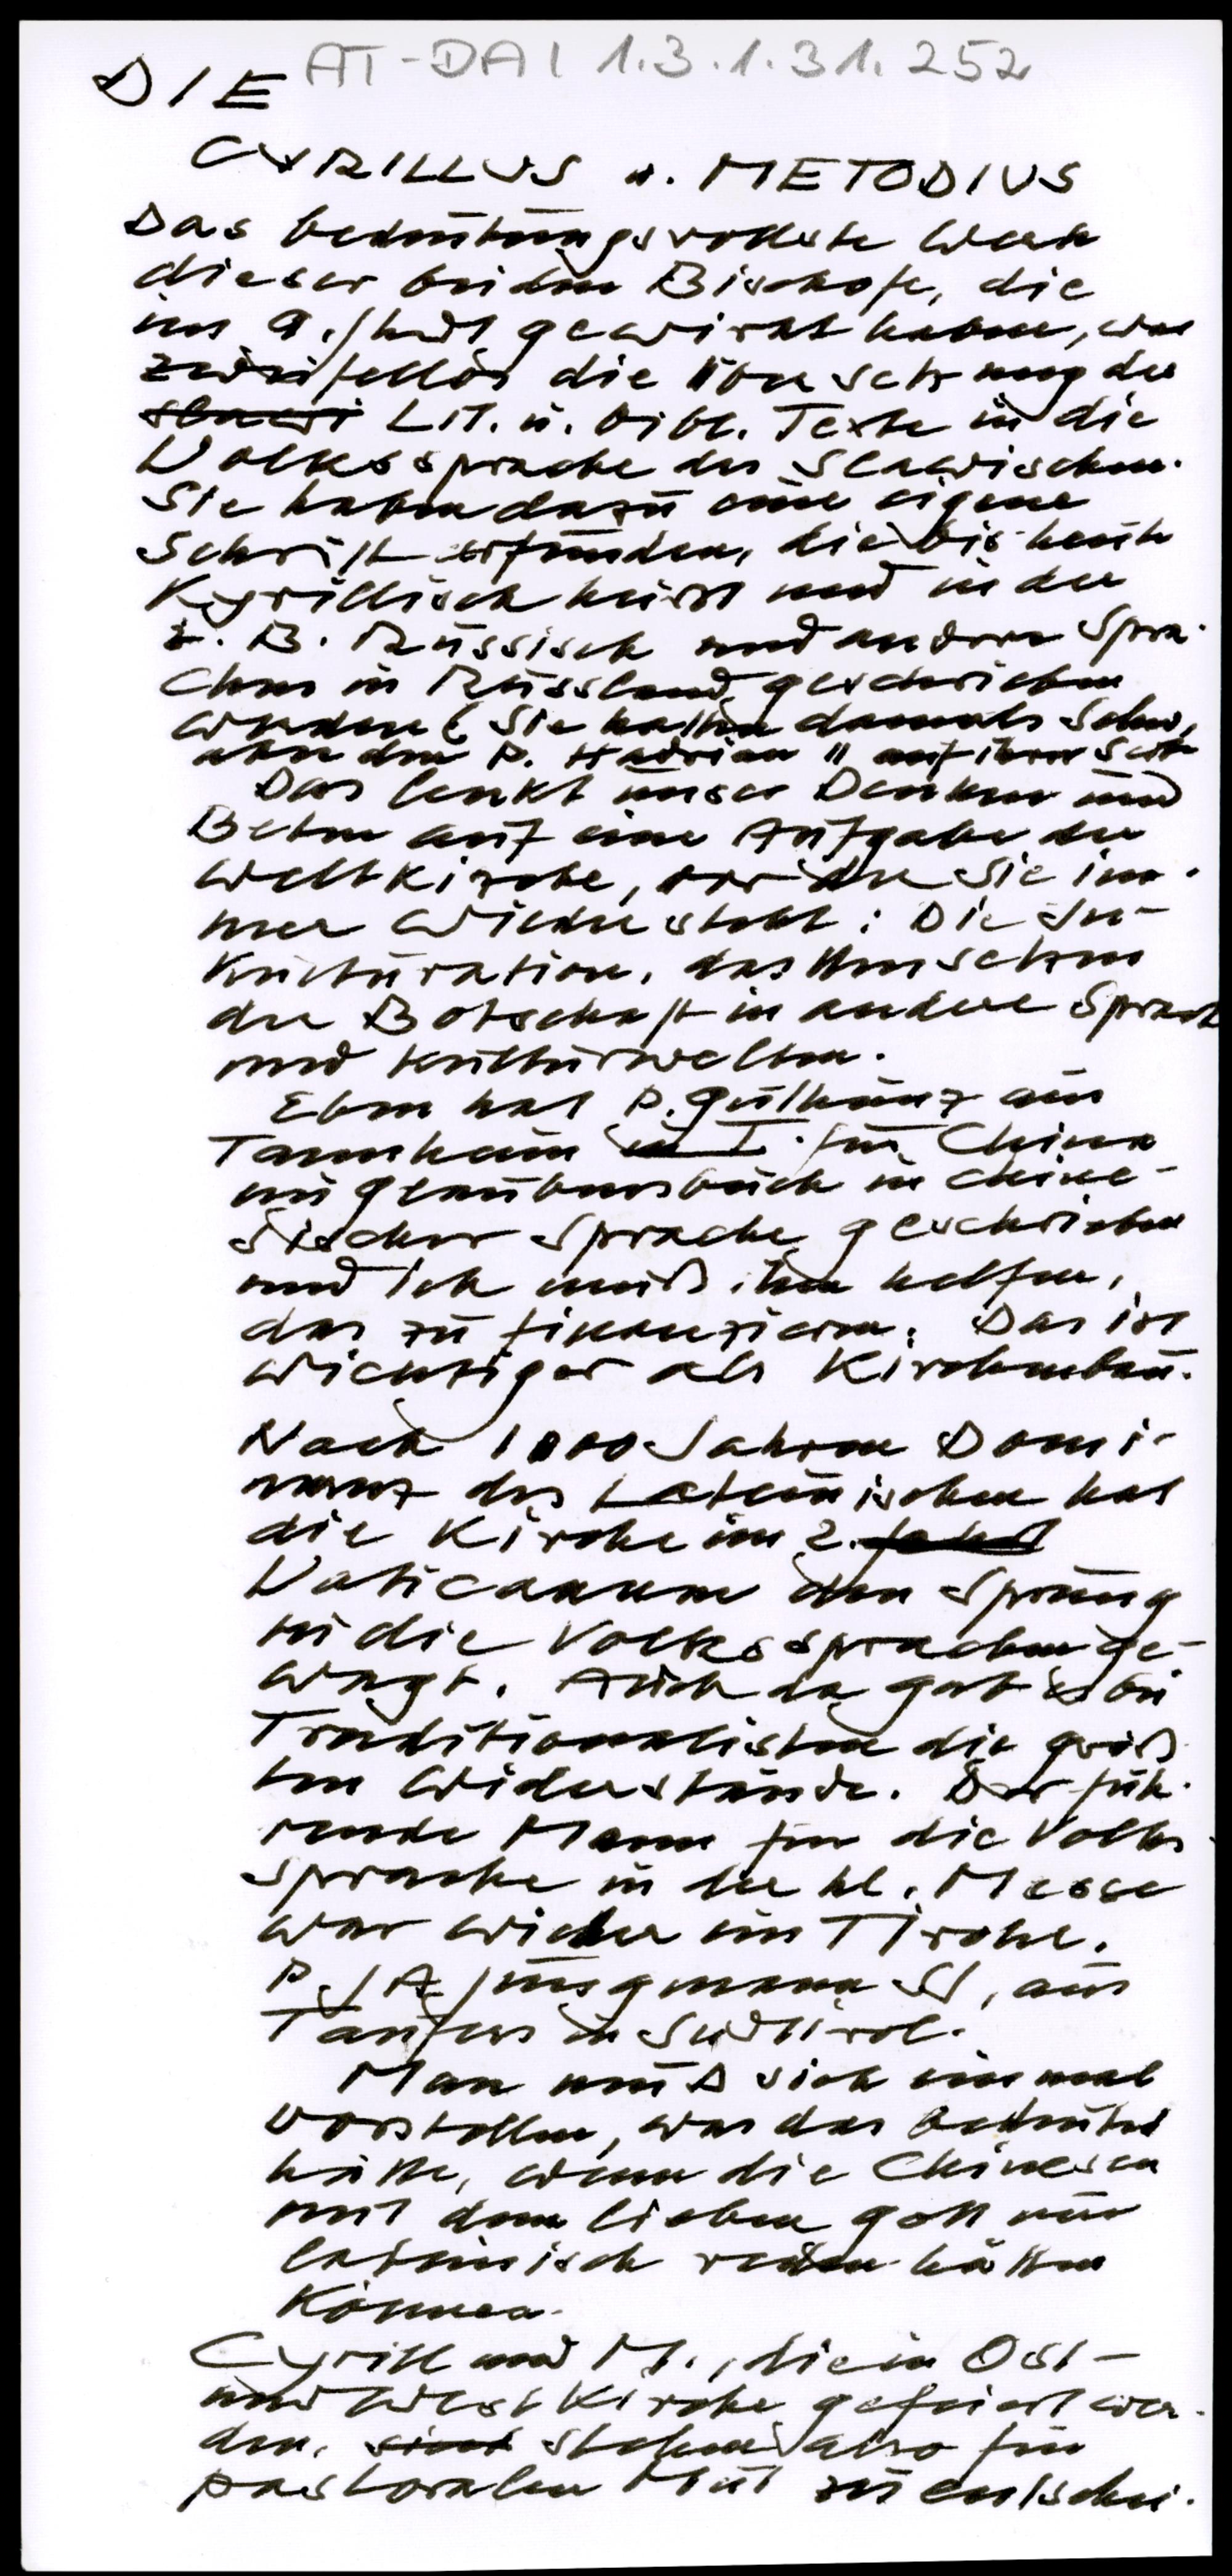 AT-DAI 1.3.1.31.252
DIE
CYRILLUS u. METODIUS
Das bedeutungsvollste Werk
dieser beiden Bischofe, die
im 9. Jhdt gewirkt haben, war
zweifellos die Übersetzung der
slawi Lit. u. bibl. Texte in die
Volkssprache des Slawischen.
Sie haben dazu eine eigene
Schrift erfunden, die bis heute
Kyrillisch heisst und in der
z. B. Russisch und andere Spra-
chen in Russland geschrieben
werden (Sie hatten damals schon,
aber den P. Hadrian II auf ihrer Seite
Das lenkt unser Denken und
Beten auf eine Aufgabe der
Weltkirche, vor der sie im-
mer wieder steht: Die In-
kulturation, das Umsetzen
der Botschaft in andere Sprach
und Kulturwelten.
Eben hat P. Gutheinz aus
Tannheim in T. für China
ein Glaubensbuch in chine-
sischer Sprache geschrieben
und ich muß ihm helfen,
das zu finanzieren. Das ist
wichtiger als Kirchenbau.
Nach 1000 Jahren Domi-
nanz des Lateinischen hat
die Kirche im 2.
Vaticanum den Sprung
in die Volkssprachen ge-
wagt. Auch da gab es bei
Traditionalisten die größ-
ten Widerstände. Der füh-
rende Mann für die Volks-
sprache in der hl. Messe
war wieder ein Tiroler.
P. J A Jungmann SJ, aus
Taufers in Südtirol.
Man muß sich einmal
vorstellen, was das bedeutet
hätte, wenn die Chinesen
mit dem lieben Gott nur
lateinisch reden hätten
können.
Cyrill und M., die in Ost-
und Westkirche gefeiert wer-
den, sind stehen also für
pastoralen Mut zu entschei-